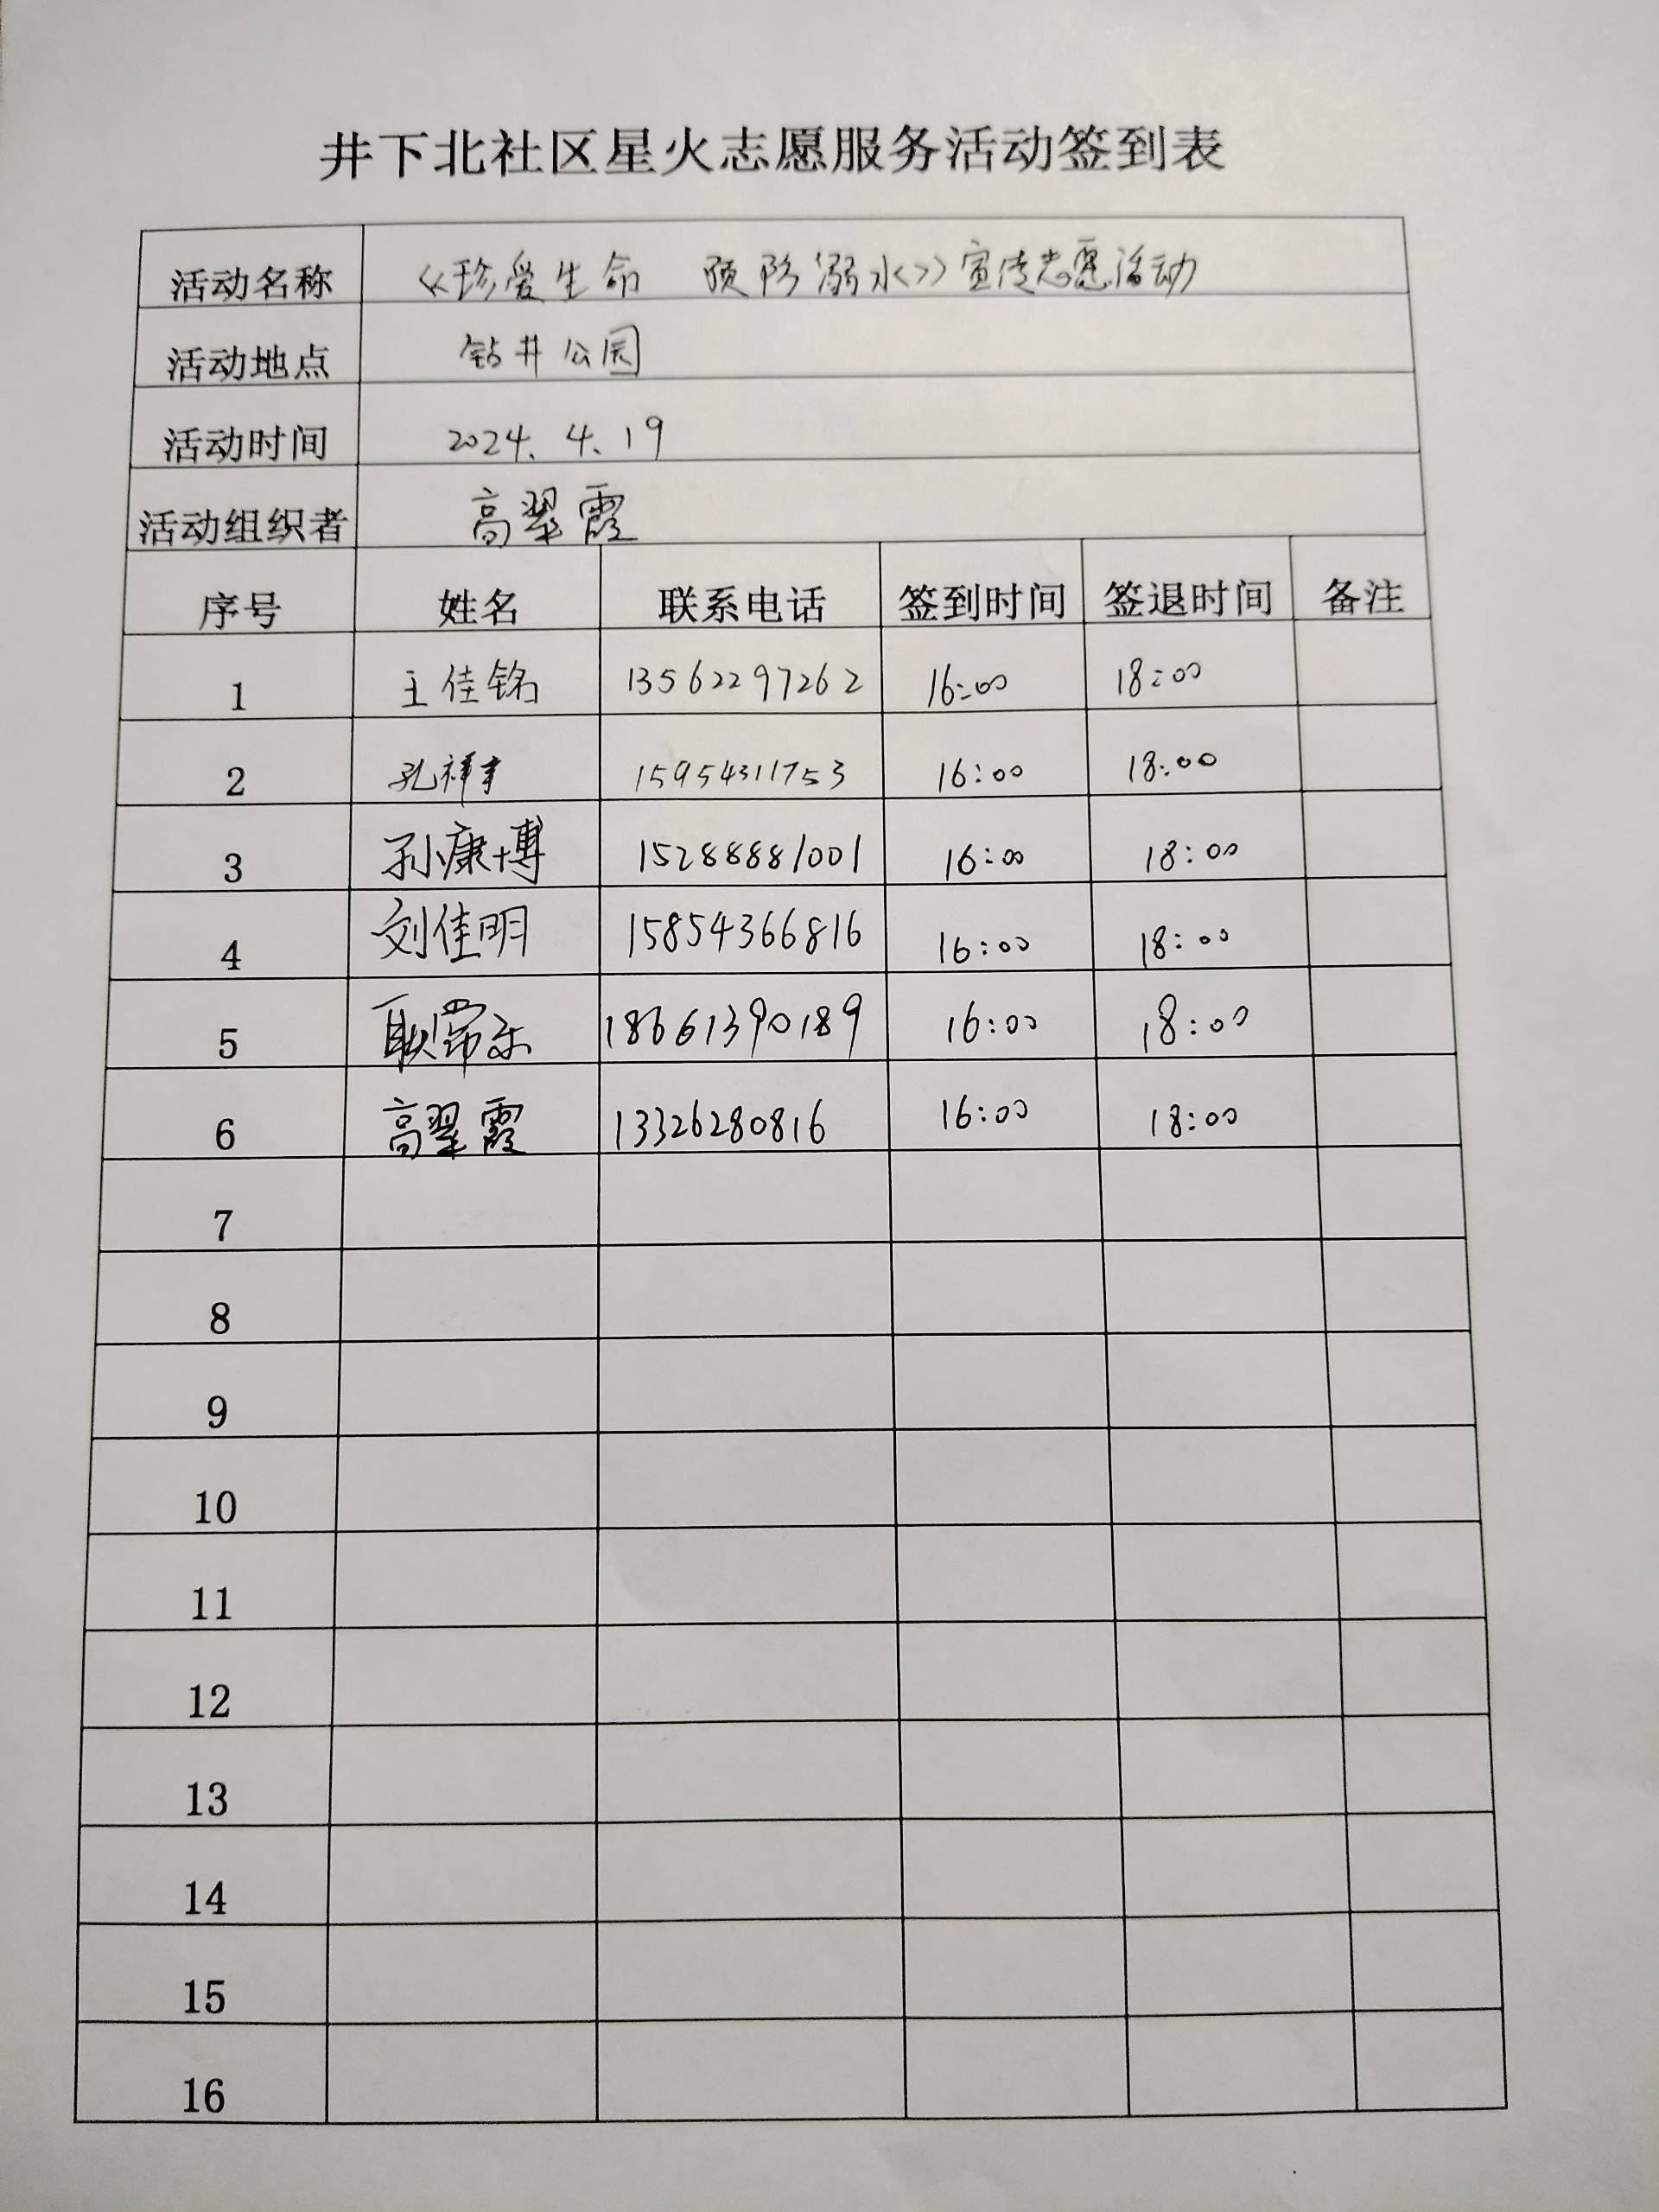 井下北社区星火志愿服务活动签到表
活动名称 《珍爱生命 预防溺水》宣传志愿活动
活动地点 钻井公园
活动时间 2024.4.19
活动组织者 高翠霞
序号 姓名 联系电话 签到时间 签退时间 备注
1 王佳铭 13562297262 16:00 18:00
2 孔祥 15954311753 16:00 18:00
3 孙康博 15288881001 16:00 18:00
4 刘佳明 15854366816 16:00 18:00
5 耿常乐 18661390189 16:00 18:00
6 高翠霞 13326280816 16:00 18:00
7
8
9
10
11
12
13
14
15
16